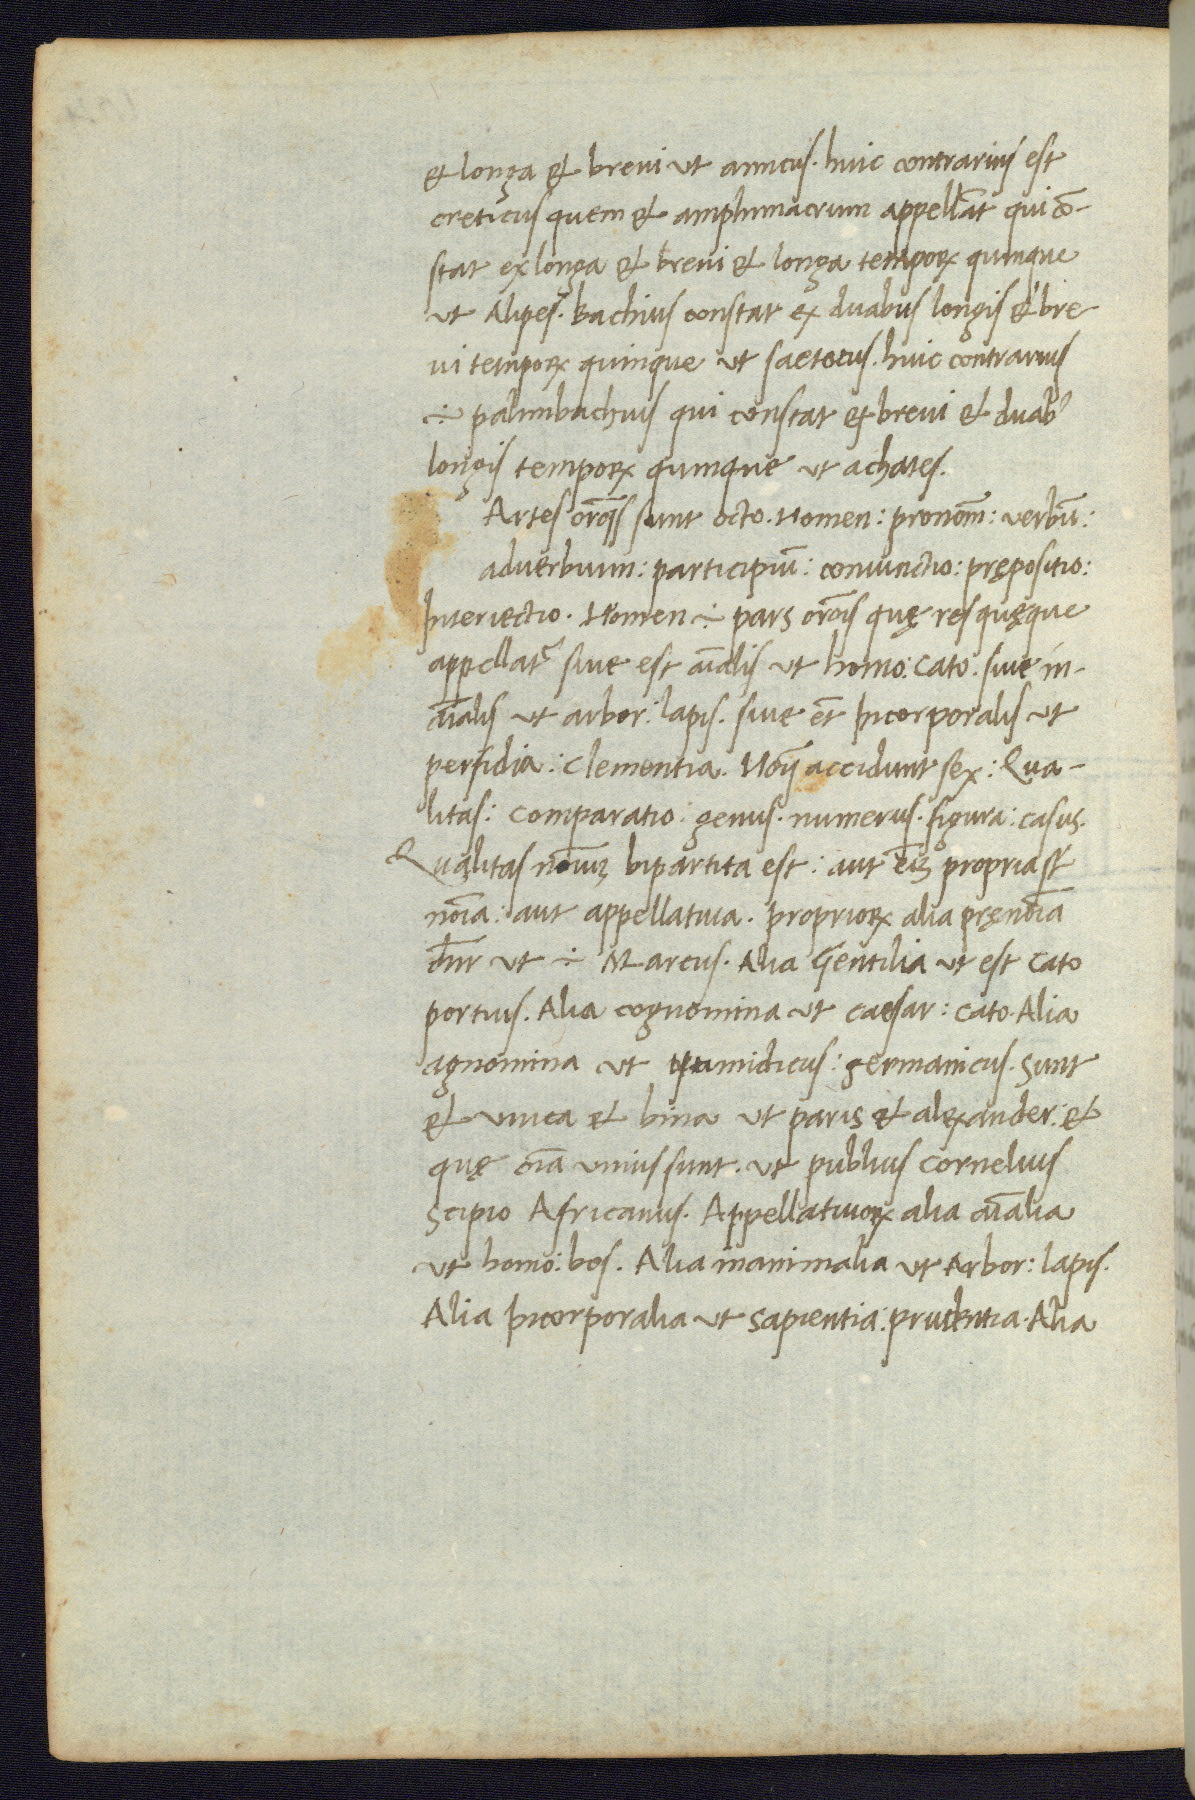 & longa & breui ut amicus. huic contrarius est
creticus quem & amphimacrum appellāt qui cō-
stat ex longa & breui & longa temporꝝ quinque
ut Alipes. bachius constat ex duabus longis & bre
ui temporꝝ quinque ut saetorus. huic contrarius
÷ palimbachius qui constat ex breui & duab'
longis temporꝝ quinque ut achates.
Artes orōis sunt octo. Nomen: pronom̄: verbū:
aduerbium: participiū: coniunctio: prępositio:
Interiectio. Nomen ÷ pars orōis quę res quęque
appellatr̃ siue est aīalis ut homo: Cato. siue in-
aīalis ut arbor: lapis. siue et̄ Incorporalis ut
perfidia: Clementia. Noī accidunt sex: Qua-
litas: Comparatio: genus. numerus. figura: casus.
Qualitas noīuꝫ bipartita est: aut eīꝫ propria st̄
noīa: aut appellatiua. propriorꝝ alia pręnoīa
dn̄r ut ÷ Marcus. Alia Gentilia ut est Cato
portius. Alia cognomina ut caesar: Cato. Alia
agnomina ut numidicus: germanicus. Sunt
& unica & bina ut paris & alexander: &
quę oīa unius sunt. ut publius Cornelius
Scipio Africanus. Appellatiuorꝝ alia aīalia
ut homo: bos. Alia inanimalia ut Arbor: lapis.
Alia Incorporalia ut sapientia: prudentia. Alia